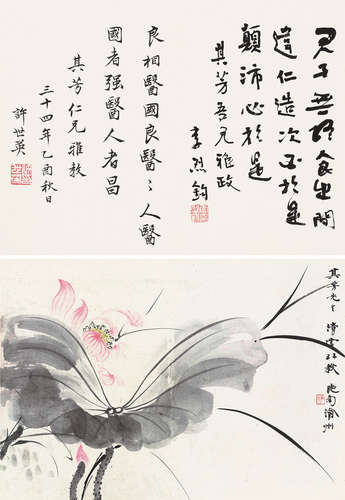 君子無終食之間
違仁造次必於是
顛沛必於是
其芳吾兄雅政
李烈鈞
良相醫國良醫々人醫
國者強醫人者昌
其芳仁兄雅教
三十四年乙酉秋日
許世英
其芳先生 清宣政教
渝州